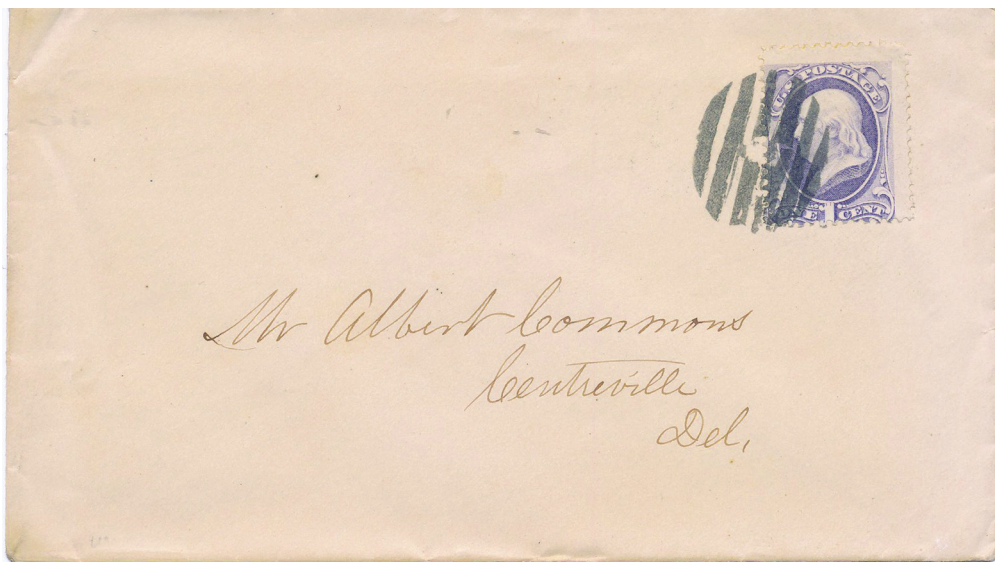 U.S. POSTAGE
ONE 1 CENT
Mr Albert Commons
Centreville
Del,